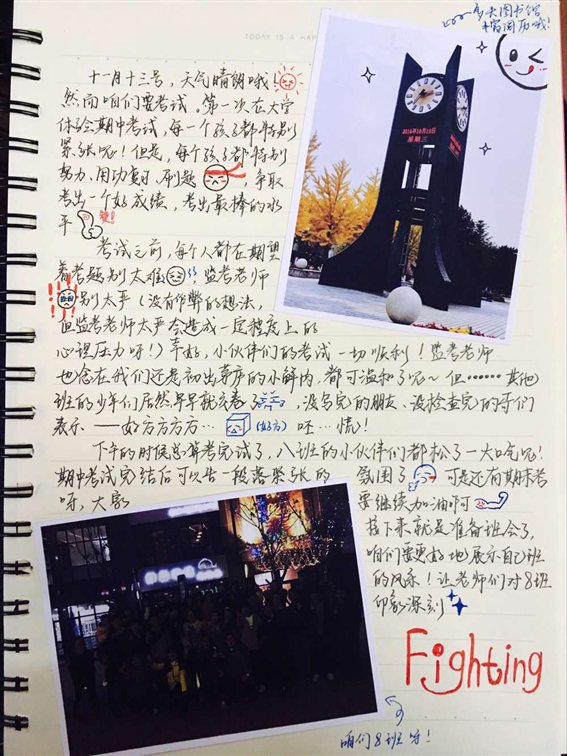 TODAY IS A HAP
多去图书馆
十一月十三号，天气晴朗哦！
然而咱们要考试。第一次在大学
体会期中考试，每一个孩子都特别
紧张呢！但是，每个孩子都特别
努力、用功复习、刷题，争取
考出一个好成绩，考出最棒的水
平
考试之前，每个人都在期望
着考题别太难，监考老师
别太严（没有作弊的想法，
但监考老师太严会造成一定程度上的
心理压力呀！）幸好，小伙伴们的考试一切顺利！监考老师
也念在我们还是初出茅庐的小鲜肉，都可温和了呢～但……其他
班的少年们居然早早就交卷了，没写完的朋友、没检查完的哥们
表示——好方方方方…（好方）呀…慌！
下午的时候总算考完试了，八班的小伙伴们都松了一大口气呢！
期中考试完结后可以告一段落紧张的氛围了，可是还有期末考
呀，大家要继续加油啊
接下来就是准备班会了，
咱们要更好地展示自己班
的风采！让老师们对8班
印象深刻
Fighting
咱们8班呀！
星期三